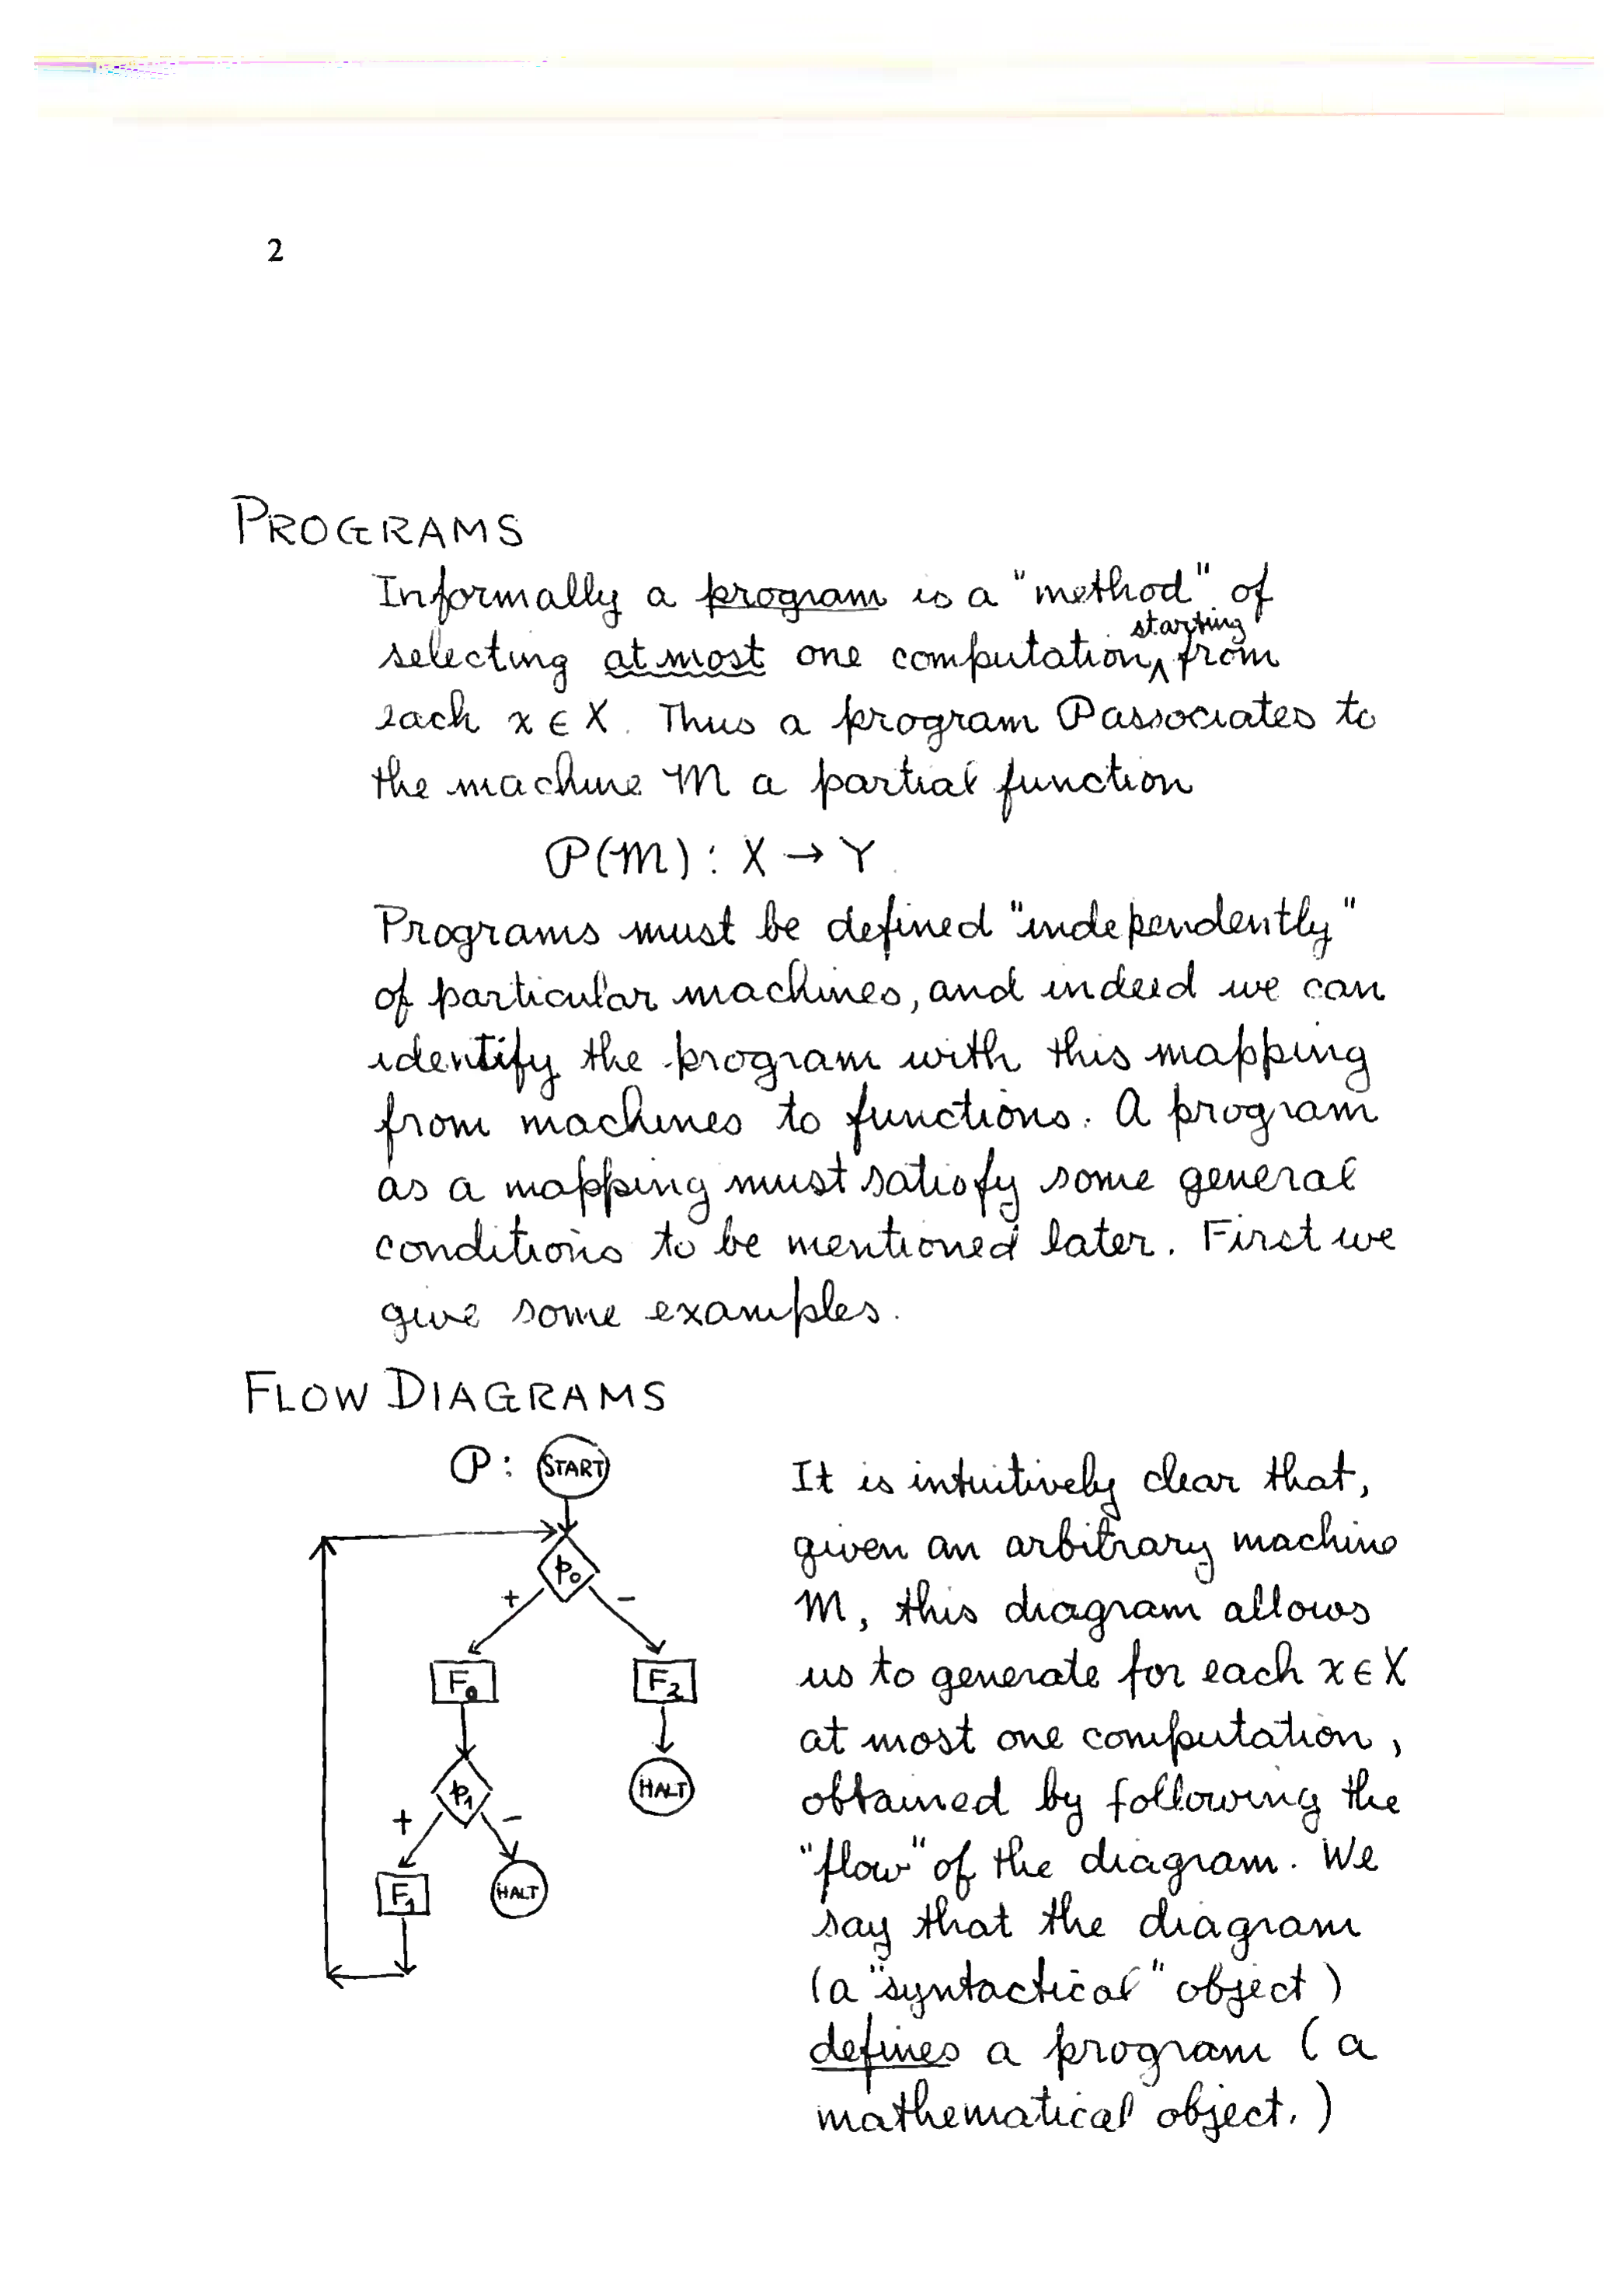 2
PROGRAMS
Informally a program is a "method" of
selecting at most one computation, starting from
each x ∈ X. Thus a program P associates to
the machine M a partial function
P(M) : X → Y
Programs must be defined "independently"
of particular machines, and indeed we can
identify the program with this mapping
from machines to functions. A program
as a mapping must satisfy some general
conditions to be mentioned later. First we
give some examples.
FLOW DIAGRAMS
P: START
p₀
+ −
F₀ F₂
p₁ HALT
+ −
F₁ HALT
It is intuitively clear that,
given an arbitrary machine
M, this diagram allows
us to generate for each x ∈ X
at most one computation,
obtained by following the
"flow" of the diagram. We
say that the diagram
(a "syntactical" object)
defines a program (a
mathematical object.)